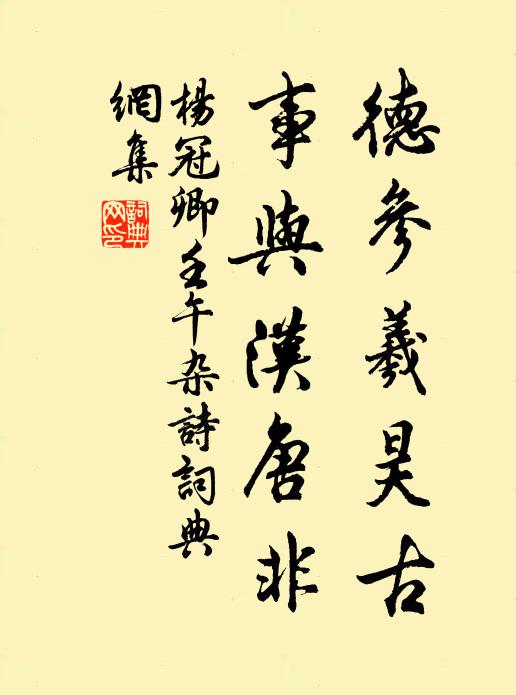 德參羲昊古
事與漢唐非
楊冠卿壬午杂詩詞典
網集
詞典网印